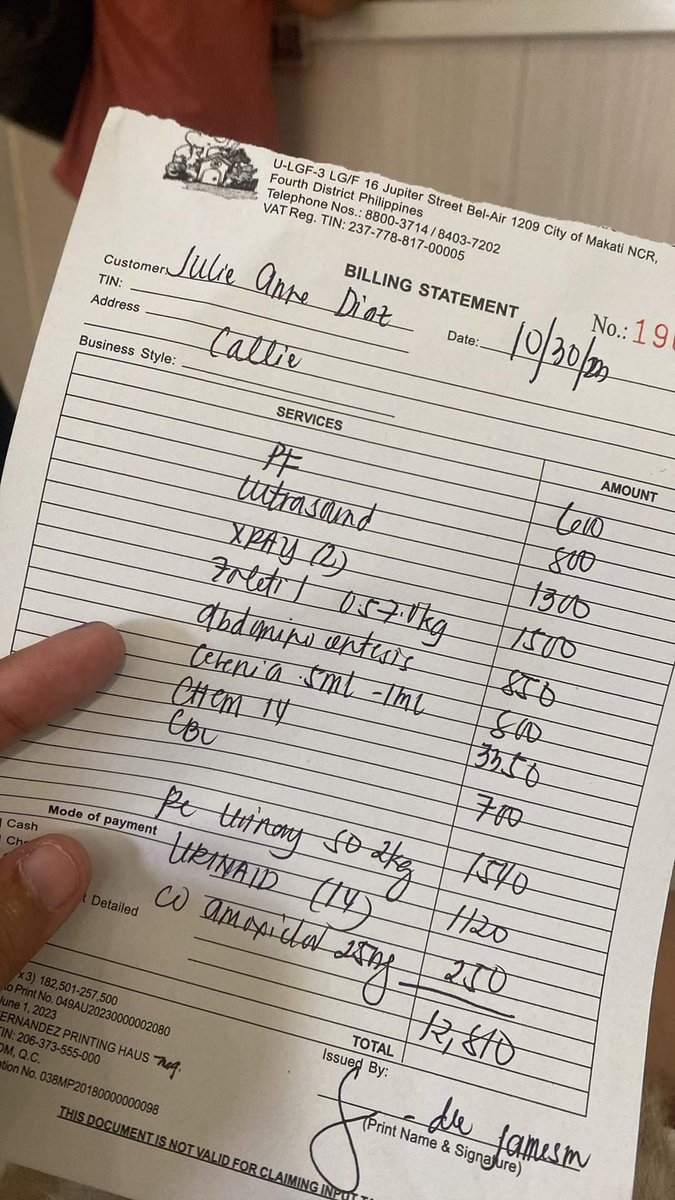 U-LGF-3 LG/F 16 Jupiter Street Bel-Air 1209 City of Makati NCR,
Fourth District Philippines
Telephone Nos.: 8800-3714 / 8403-7202
VAT Reg. TIN: 237-778-817-00005
BILLING STATEMENT
No.: 19
Customer: Julie Anne Diaz
Date: 10/30/23
TIN:
Address
Callie
Business Style:
SERVICES AMOUNT
PF 600
Ultrasound 800
XRAY (2) 1300
Zoletil 1500
abdominocentesis 850
Cerenia .5ml -1ml 800
CHEM 14 3350
CBC 700
Mode of payment
Cash
Urinary SO 2kg 1540
URINAID (14) 1120
Detailed
co amoxiclav 250
TOTAL 12,810
Issued By:
(Print Name & Signature)
x 3) 182,501-257,500
to Print No. 049AU20230000002080
June 1, 2023
ERNANDEZ PRINTING HAUS
TIN: 206-373-555-000
OM, Q.C.
ation No. 038MP20180000000098
THIS DOCUMENT IS NOT VALID FOR CLAIMING INPUT